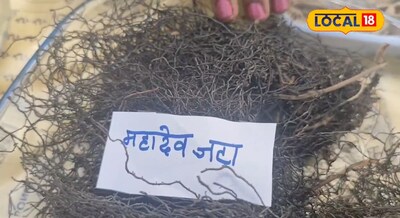 LOCAL 18
महादेव जटा